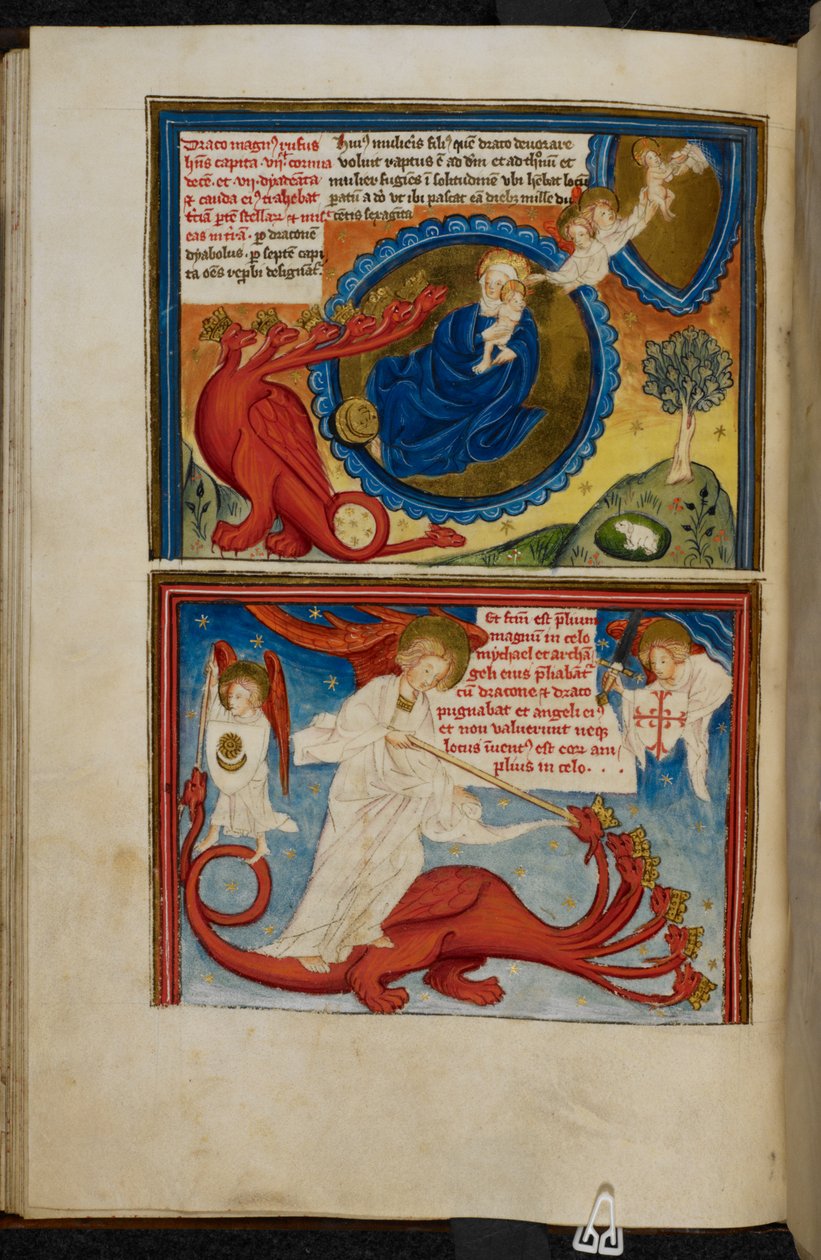 Draco magnꝰ rufus
hn̄s capita · vii · cornua
decē · et · vii · dyademata
et cauda eiꝰ trahebat
tciā ptē stellaꝝ et mis
eas in trā · p draconē
dyabolus · p septē capi
ta oēs
Huiꝰ mulieris filiꝰ quē draco deuorare
voluit raptus ē ad dm̄ et ad thronū et
mulier fugiēs ī solitudinē vbi hēbat locū
patū a do vt ibi pascat eā diebꝫ mille du
cētis sexaginta
Et fcm̄ est p̄lium
magnum in celo
mychael et archā
geli eius p̄liabāt
cū dracone et draco
pugnabat et angeli eiꝰ
et non valuerunt neqꝫ
locus īuentꝰ est eoꝝ am
plius in celo · . .